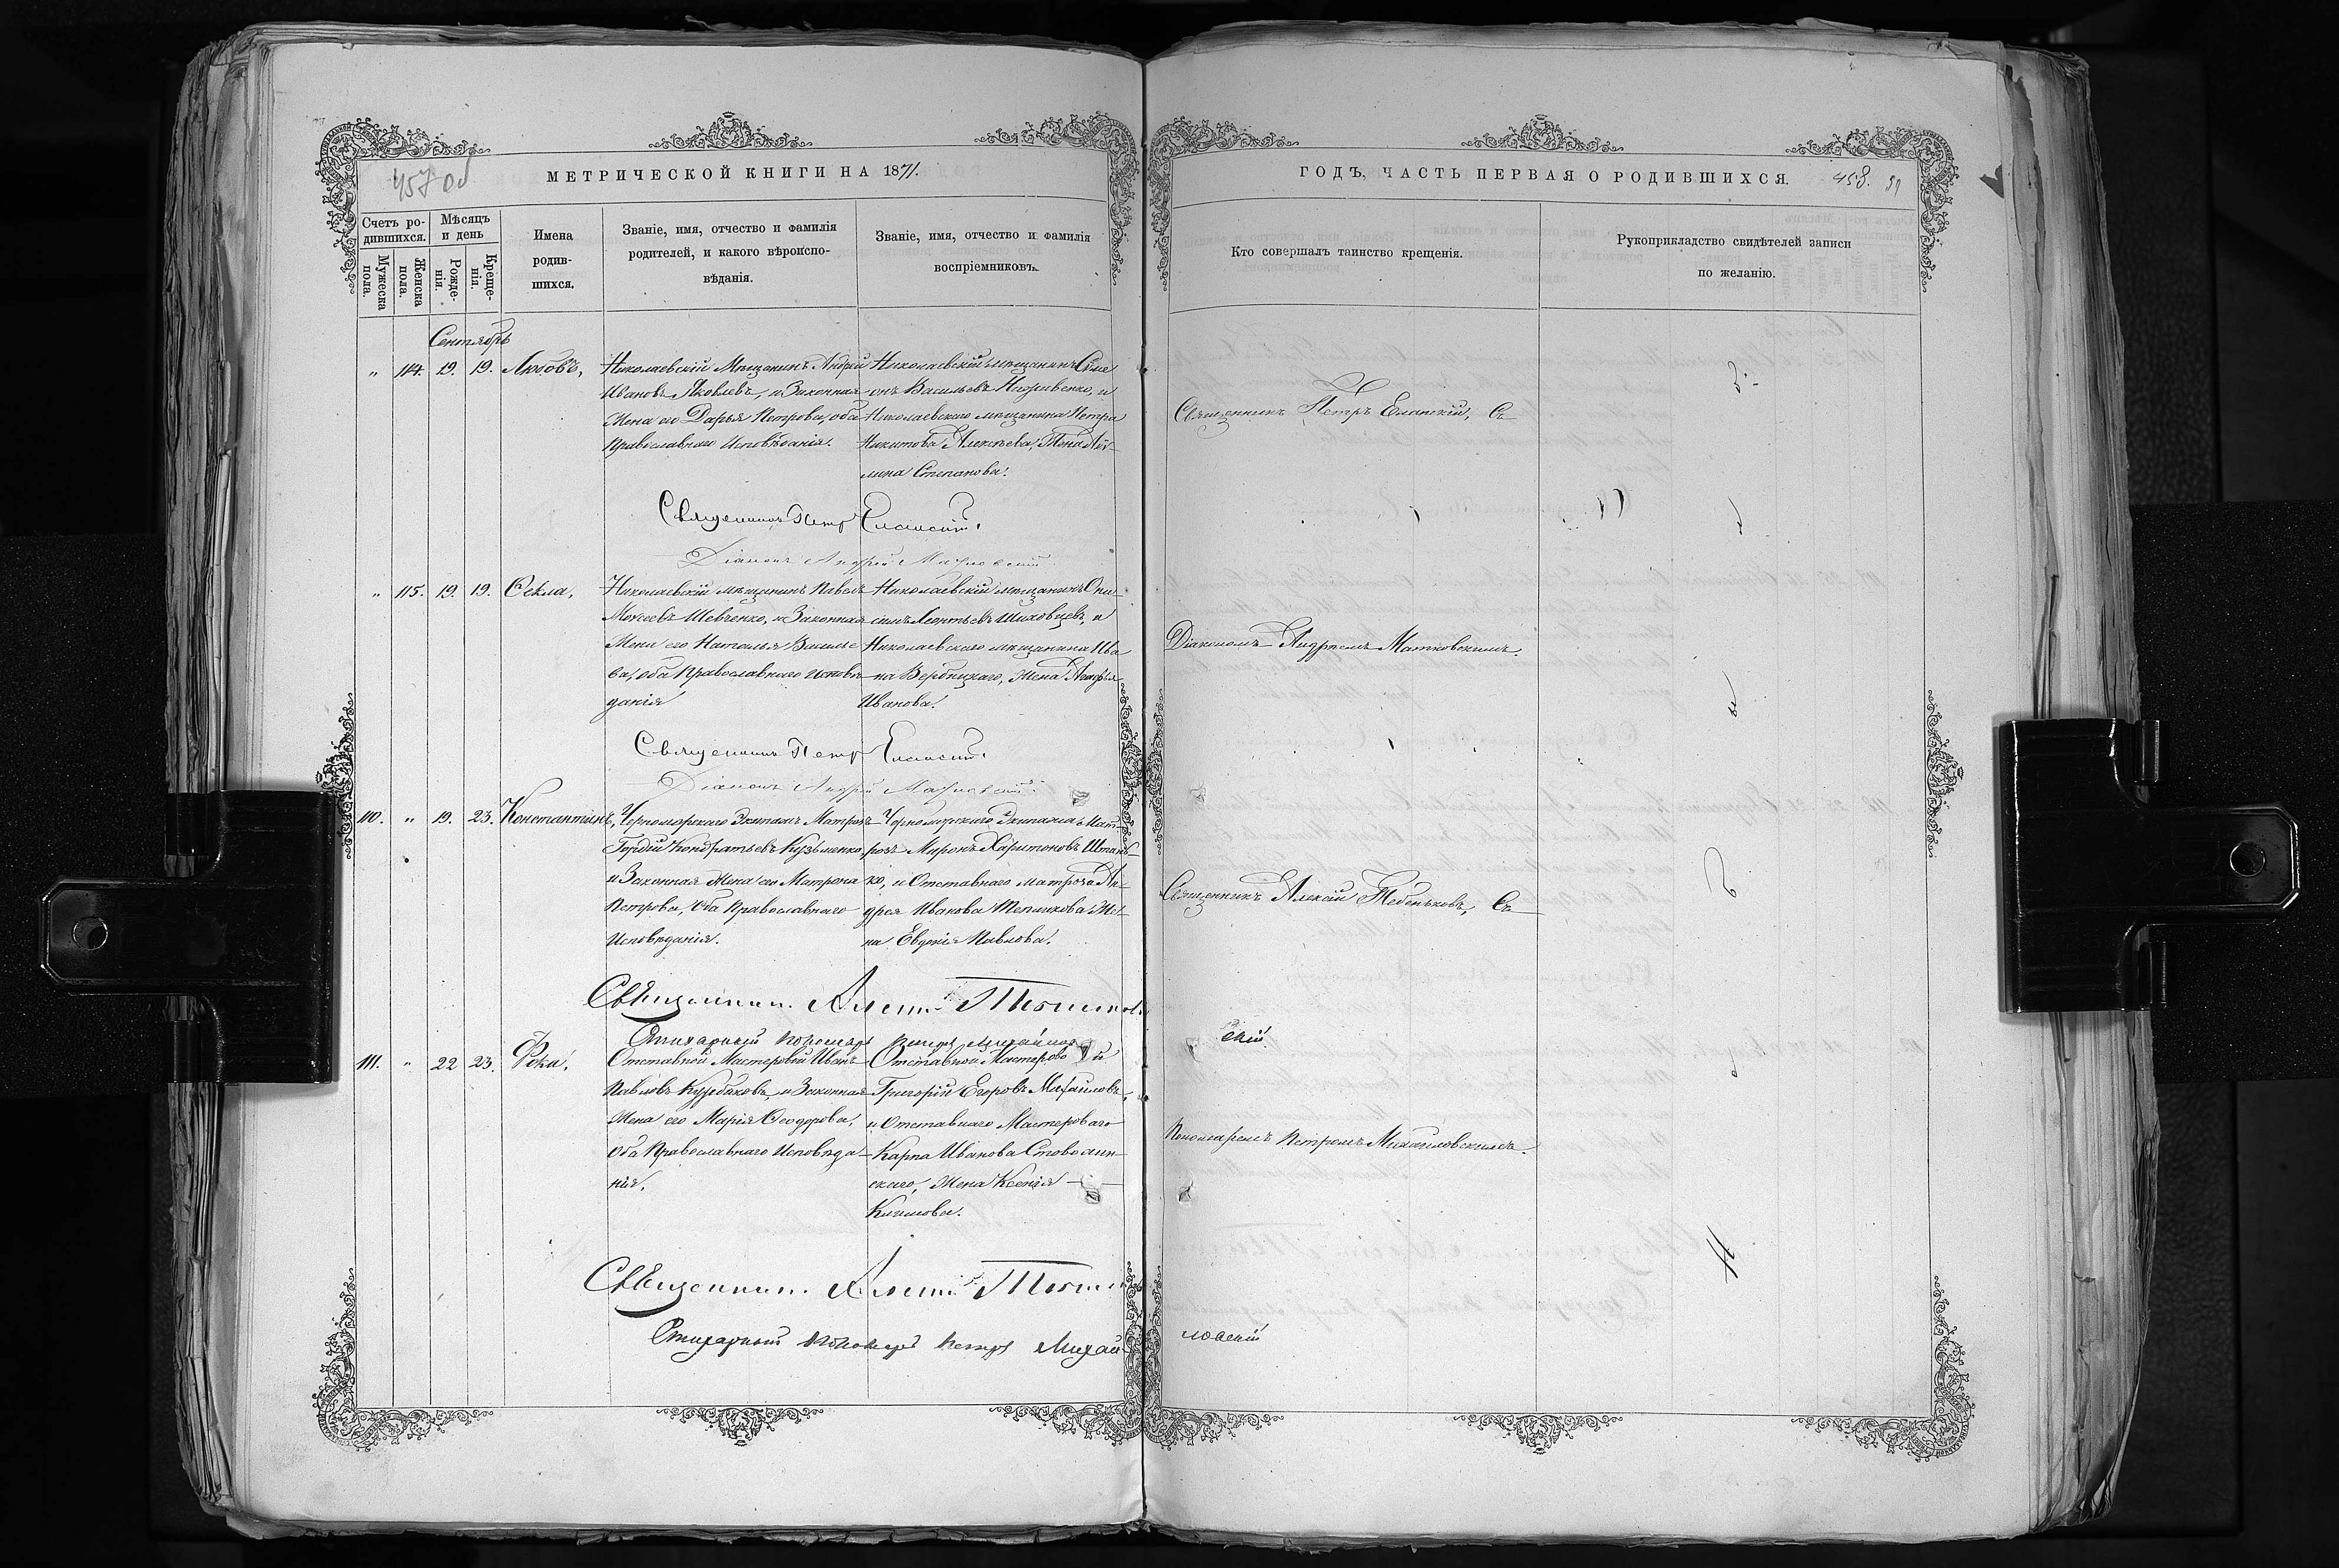 457 об
МЕТРИЧЕСКОЙ КНИГИ НА 1871.
Счетъ ро-
дившихся.
Мужеска
пола.
Женска
пола.
Мѣсяцъ
и день
Рожде-
нія.
Креще-
нія.
Имена
родив-
шихся.
Званіе, имя, отчество и фамилія
родителей, и какого вѣроиспо-
вѣданія.
Званіе, имя, отчество и фамилія
воспріемниковъ.
Сентябрь
„ 114. 19. 19. Любовь,
Николаевскій Мѣщанинъ Андрій
Ивановъ Яковлевъ, и Законная
Жена его Дарья Петрова, оба
Православнаго Исповѣданія.
Николаевскій мѣщанинъ Симе
онъ Васильевъ, и
Николаевскаго мѣщанина Петра
Никитова Алексѣева, Жена
Степанова.
Священникъ Петръ Еланскій.
Діаконъ Андрей Матковскій
„ 115. 19. 19. Ѳекла,
Николаевскій мѣщанинъ Павелъ
Мокеевъ Шевченко, и Законная
Жена его Наталья Василье
ва, оба Православнаго исповѣ
данія
Николаевскій мѣщанинъ Они
симъ Леонтьевъ Шиховцевъ, и
Николаевскаго мѣщанина Ива
на Вербицкаго, Жена Агафья
Иванова.
Священникъ Петръ Еланскій.
Діаконъ Андрей Матковскій
110. „ 19. 23. Константинъ,
Черноморскаго Экипажа Матрозъ
Гордій Кондратьевъ Кузьменко,
и Законная Жена его Матрона
Петрова, Оба Православнаго
Исповѣданія.
Черноморскаго Экипажа Мат-
розъ Миронъ Харитоновъ Штань-
ко, и Отставнаго матроза Ан-
дрея Иванова Же-
на Евдокія Павлова.
Священникъ Алексій
Стихарный пономарь Петръ Михайлов
111. „ 22 23. Фока,
Отставной Мастеровой Иванъ
Павловъ Курбаковъ, и Законная
Жена его Марія Ѳеодорова,
Оба Православнаго Исповѣда-
нія.
Отставной Мастеровой
Григорій Егоровъ Михайловъ,
и Отставнаго Мастероваго
Карпа Иванова
скаго, Жена Ксенія
Климова.
Священникъ Алексій
Стихарный пономарь Петръ Михай-
ГОДЪ, ЧАСТЬ ПЕРВАЯ О РОДИВШИХСЯ.
458.
Кто совершалъ таинство крещенія.
Рукоприкладство свидѣтелей записи
по желанію.
Священникъ Петръ Еланскій, Съ
Діакономъ Андреемъ Матковскимъ.
Священникъ Алексій Тебеньковъ, Съ
скій
Пономаремъ Петромъ Михайловскимъ.
ловскій